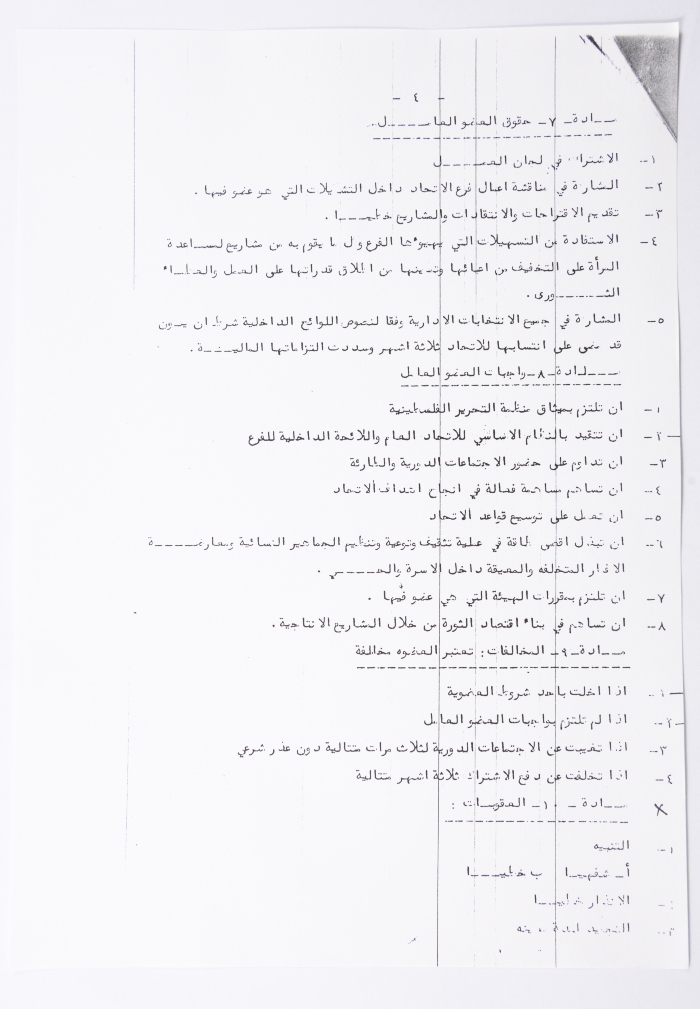 - ٤ -
مـــادة ـ ٧ ـ حقوق العضو العامـــــل
١- الاشتراك في لجان العمـــــل
٢- المشاركة في مناقشة اعمال فرع الاتحاد داخل التشكيلات التي هو عضو فيها .
٣- تقديم الاقتراحات والانتقادات والمشاريع خطيـــا .
٤- الاستفادة من التسهيلات التي يهيوءها الفرع و ما يقوم به من مشاريع لمساعدة
المرأة على التخفيف من اعبائها وتمكينها من اطلاق قدراتها على العمل والعطاء
الثـــــورى .
٥- المشاركة في جميع الانتخابات الادارية وفقا لنصوص اللوائح الداخلية شرط ان يكون
قد مضى على انتسابها للاتحاد ثلاثة اشهر وسددت التزاماتها الماليـــة .
مـــادة ـ ٨ ـ واجبات العضو العامل
١- ان تلتزم بميثاق منظمة التحرير الفلسطينية
٢- ان تتقيد بالنظام الاساسي للاتحاد العام واللائحة الداخلية للفرع
٣- ان تداوم على حضور الاجتماعات الدورية والطارئة
٤- ان تساهم مساهمة فعالة في انجاح اهداف الاتحاد
٥- ان تعمل على توسيع قواعد الاتحاد
٦- ان تبذل اقصى طاقة في عملية تثقيف وتوعية وتنظيم الجماهير النسائية ومعارضـــة
الافكار المتخلفه والمعيقة داخل الاسرة والحـــــي .
٧- ان تلتزم بمقررات الهيئة التي هي عضو فيها .
٨- ان تساهم في بناء اقتصاد الثورة من خلال المشاريع الانتاجية .
مـــادة ـ ٩ ـ المخالفات : تعتبر العضوه مخالفة
١- اذا اخلت باحد شروط العضوية
٢- اذا لم تلتزم بواجبات العضو العامل
٣- اذا تغيبت عن الاجتماعات الدورية لثلاث مرات متتالية دون عذر شرعي
٤- اذا تخلفت عن دفع الاشتراك ثلاثة اشهر متتالية
X مـــادة ـ ١٠ ـ العقوبـــات :
١- التنبيه
أ ـ شفهيـا ب خطيـــا
٢- الانذار خطيـــا
٣- التجميد لمدة